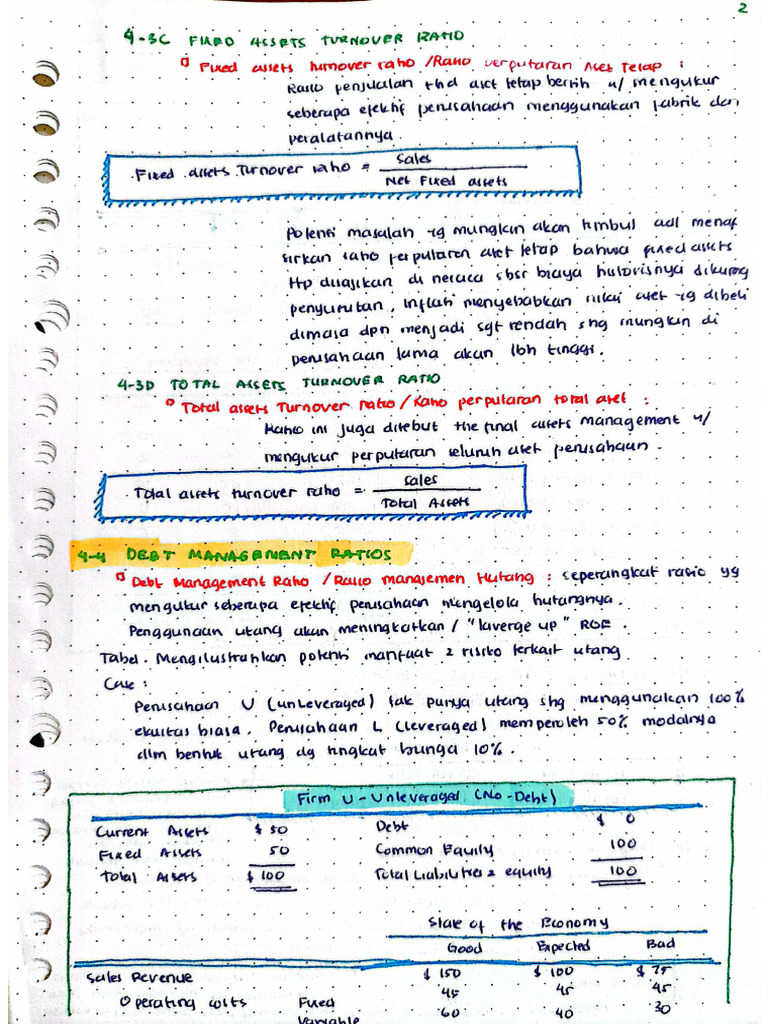 2
4-3C FIXED ASSETS TURNOVER RATIO
Fixed assets turnover ratio / Rasio perputaran Aset Tetap :
Rasio penjualan thd aset tetap bersih u/ mengukur
seberapa efektif perusahaan menggunakan pabrik dan
peralatannya.
Fixed assets Turnover ratio = Sales / Net Fixed assets
Potensi masalah yg mungkin akan timbul adl menaf
sirkan ratio perputaran aset tetap bahwa fixed assets
Htp disajikan di neraca sbsr biaya historisnya dikurang
penyusutan, Inflasi menyebabkan nilai aset yg dibeli
dimasa dpn menjadi sgt rendah shg mungkin di
perusahaan lama akan lbh tinggi.
4-3D TOTAL ASSETS TURNOVER RATIO
Total assets Turnover ratio / Ratio perputaran total aset :
Ratio ini juga disebut the final assets management u/
mengukur perputaran seluruh aset perusahaan.
Total assets turnover ratio = Sales / Total Assets
4-4 DEBT MANAGEMENT RATIOS
Debt Management Ratio / Rasio manajemen Hutang : seperangkat rasio yg
mengukur seberapa efektif perusahaan mengelola hutangnya.
Penggunaan utang akan meningkatkan / "laverge up" ROE.
Tabel. Mengilustrasikan potensi manfaat & risiko terkait utang
Case :
Perusahaan U (unLeveraged) tak punya utang shg menggunakan 100%
ekuitas biasa. Perusahaan L (leveraged) memperoleh 50% modalnya
dlm bentuk utang dg tingkat bunga 10%.
Firm U - Unleveraged (No-Debt)
Current Assets $ 50 Debt $ 0
Fixed Assets 50 Common Equity 100
Total Assets $ 100 Total Liabilities & equity 100
State of the Economy
Good Expected Bad
Sales Revenue $ 150 $ 100 $ 75
Operating costs Fixed 45 45 45
Variable 60 40 30